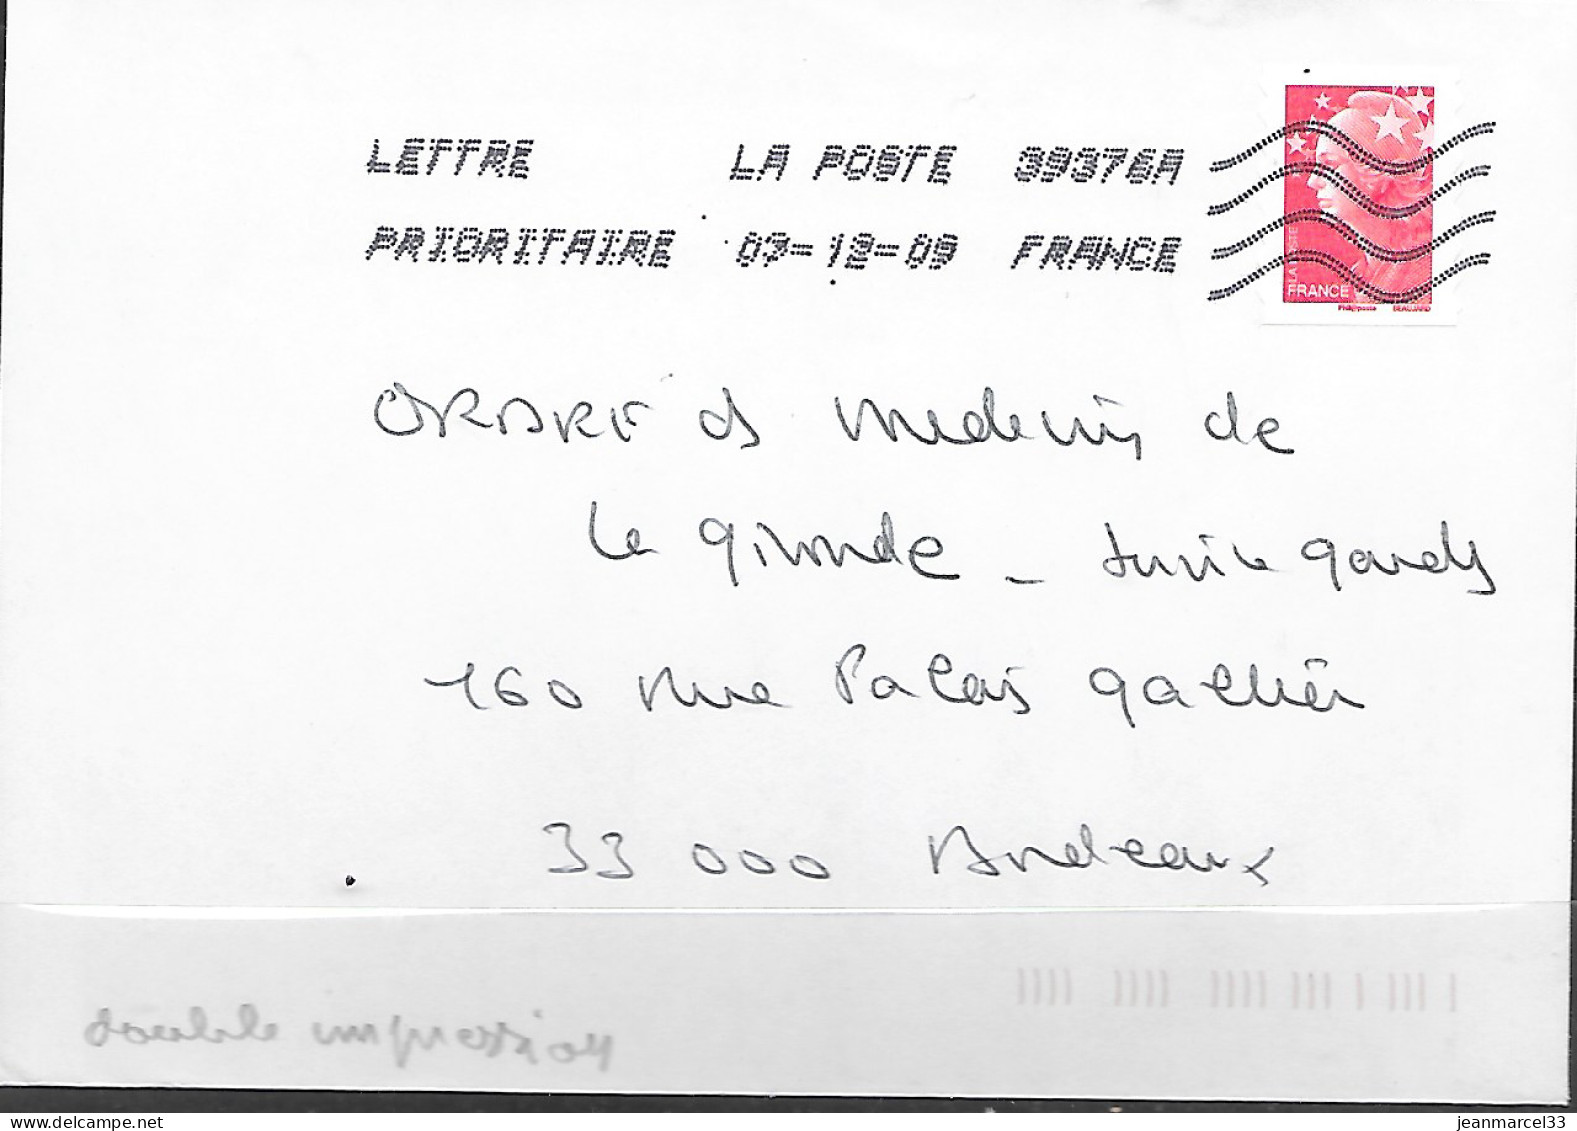 LETTRE LA POSTE 39376A
PRIORITAIRE 03-12-09 FRANCE
LA POSTE
FRANCE
Phil@poste BEAUJARD
ORDRE ds Medecins de
la gironde - service gardes
160 rue Palais gallien
33 000 Bordeaux
double impression
delcampe.net
jeanmarcel33